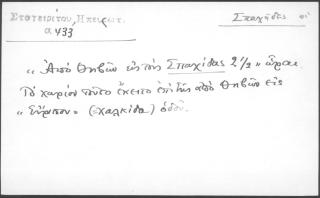 Στοτειρίτου, Ηπειρωτ.
α 433
Σπαχήδες οἱ
„ Ἀπὸ Θηβῶν εἰς τοὺς Σπαχίδας 2 1/2 „ ὧραι.
Τὸ χωρίον τοῦτο ἔκειτο ἐπὶ τῆς ἀπὸ Θηβῶν εἰς
„ Εὔριπον „ (Χαλκίδα) ὁδοῦ.